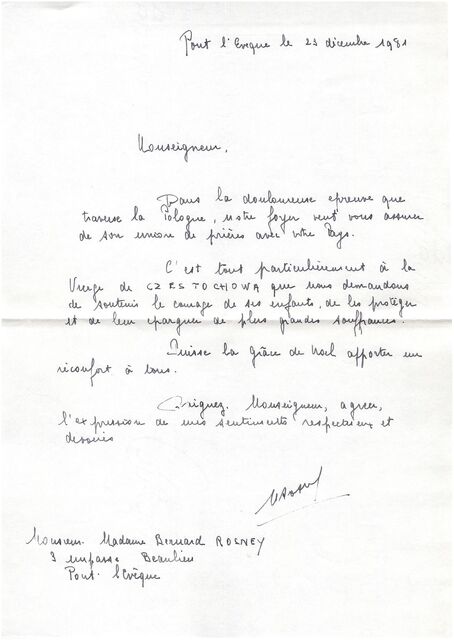 Pont l'Eveque le 23 décembre 1981
Monseigneur,
Dans la douloureuse epreuve que
traverse la Pologne, notre foyer veut vous assurer
de son union de prières avec votre Pays.
C'est tout particulièrement à la
Vierge de CZESTOCHOWA que nous demandons
de soutenir le courage de ses enfants, de les protéger
et de leur epargner de plus grandes souffrances.
Puisse la Grâce de Noel apporter un
réconfort à tous.
Daignez, Monseigneur, agreer,
l'expression de mes sentiments respectueux et
devoués
Monsieur Madame Bernard ROSNEY
3 impasse Beaulieu
Pont. l'Evêque